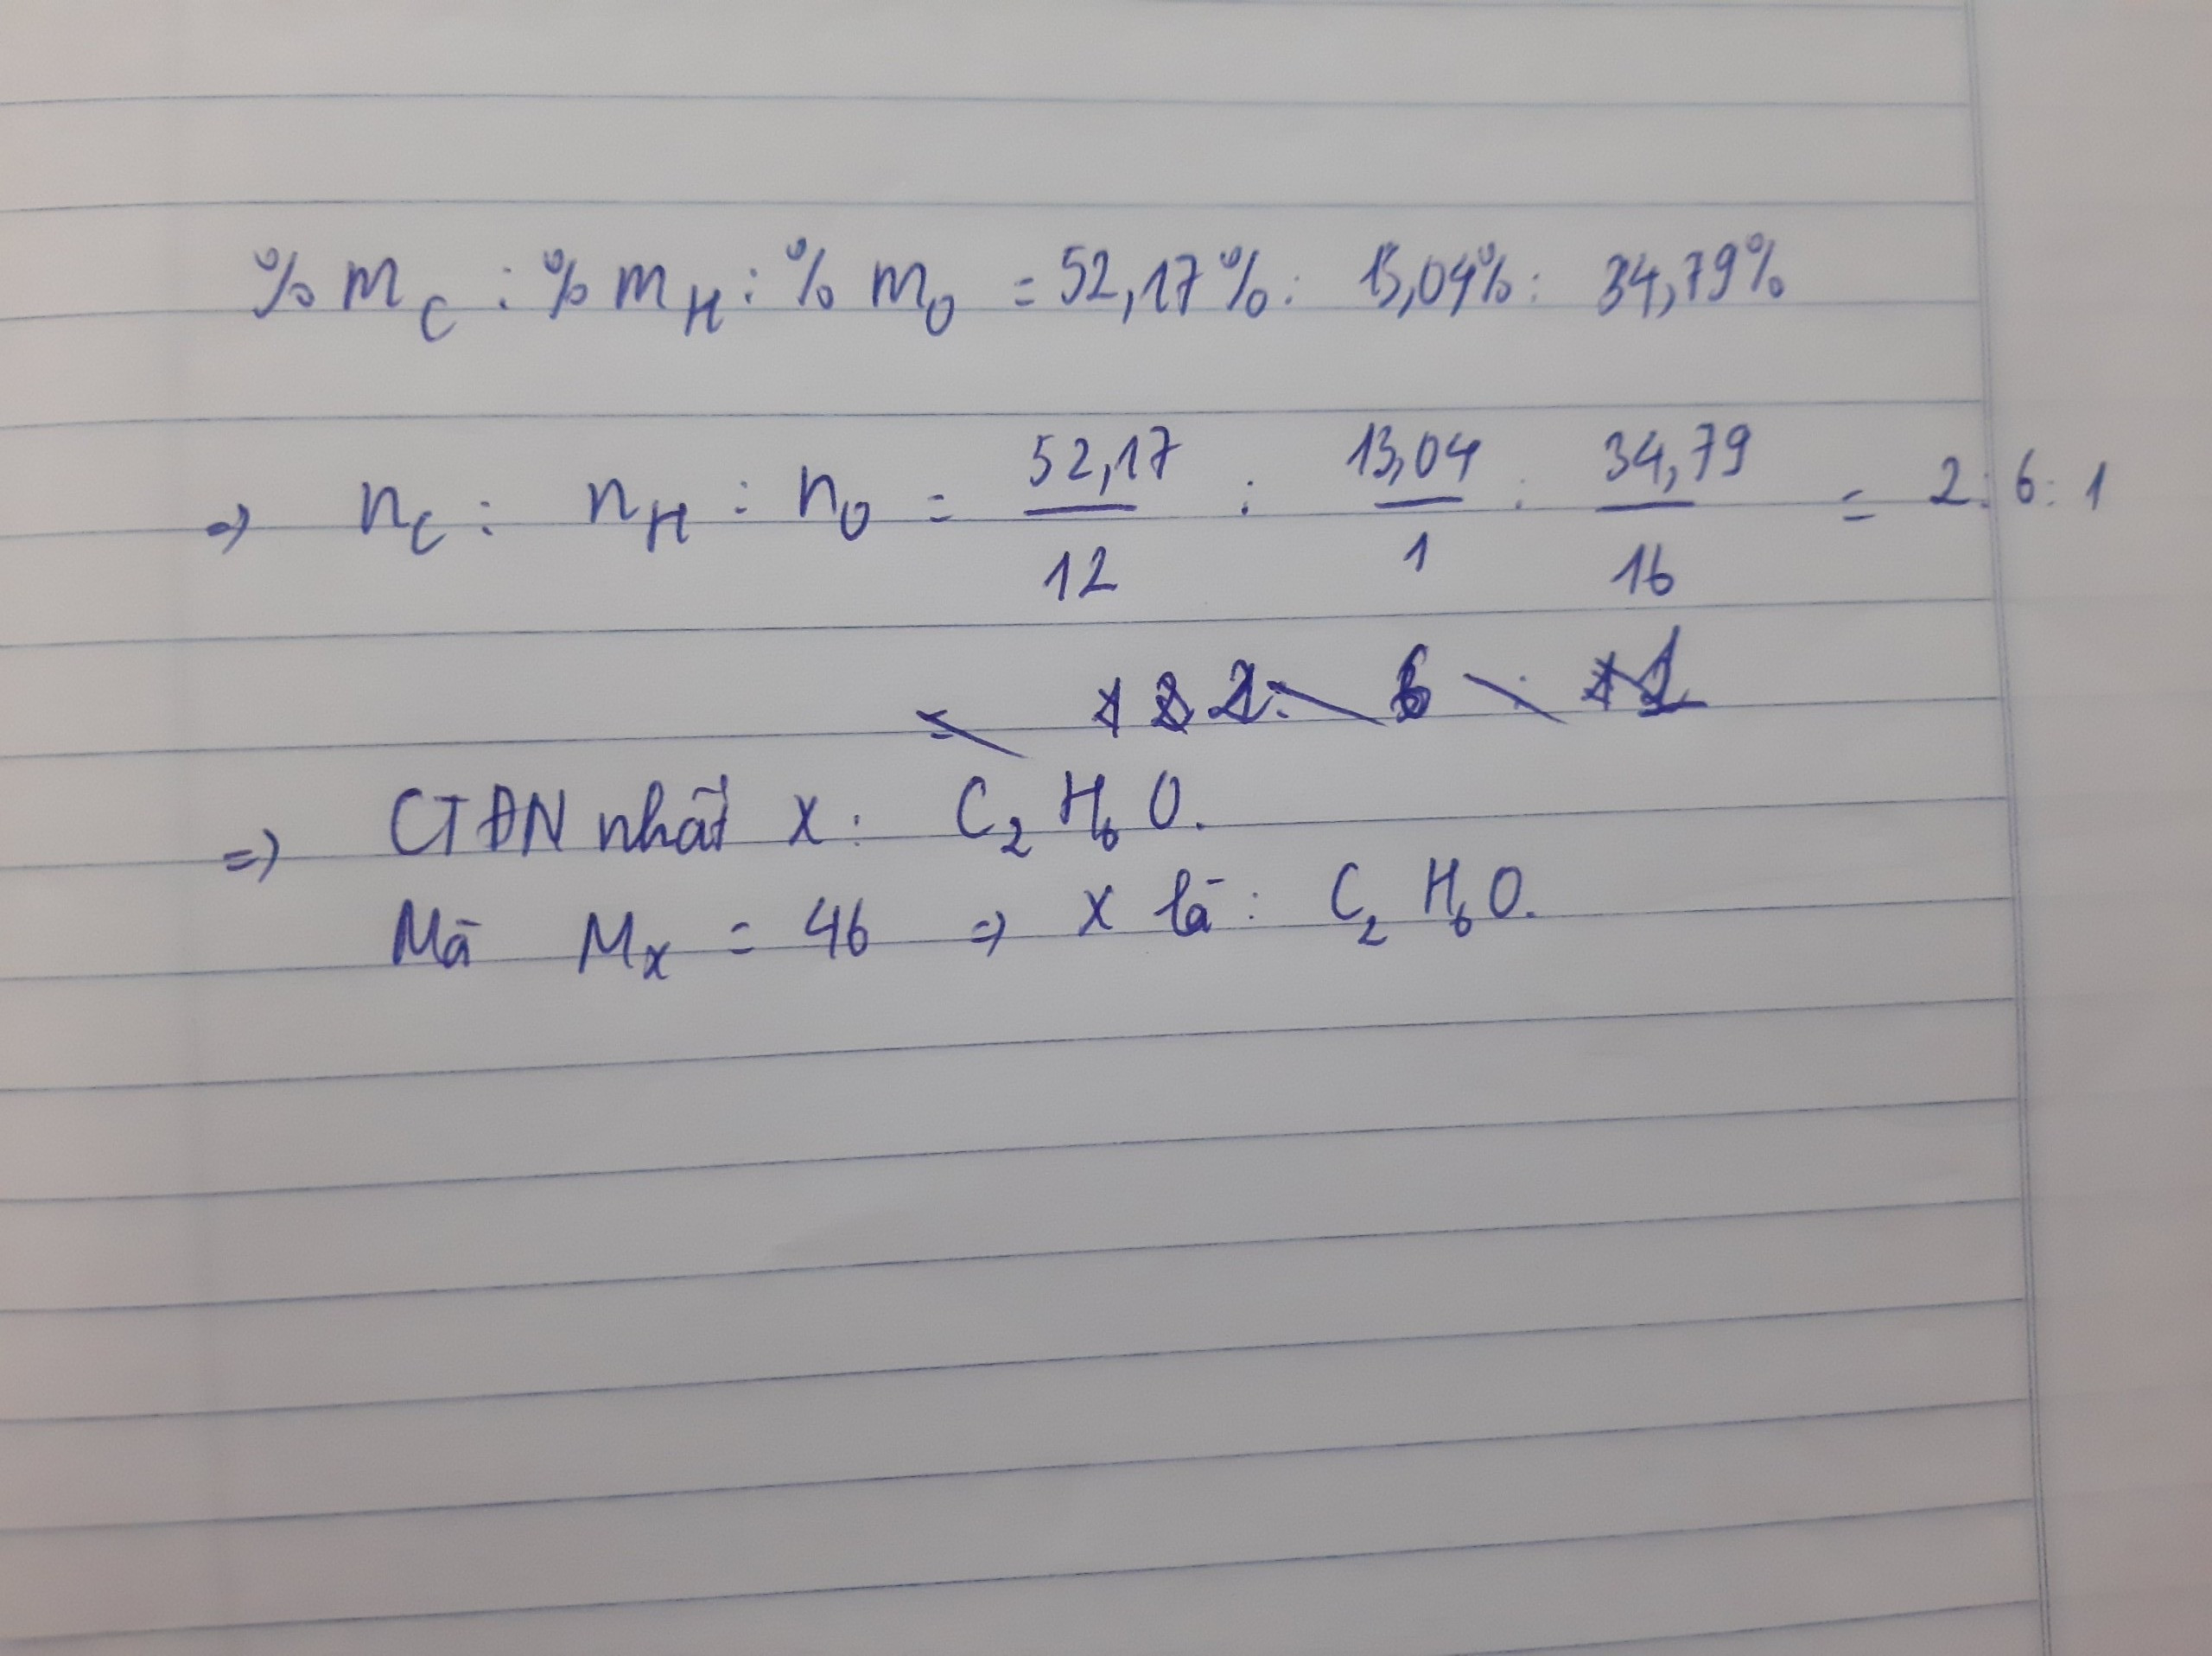 % m_C : % m_H : % m_O = 52,17% : 13,04% : 34,79%
=> n_C : n_H : n_O = 52,17/12 : 13,04/1 : 34,79/16 = 2 : 6 : 1
=> CTĐN nhất X : C₂H₆O.
Mà M_X = 46 => X là : C₂H₆O.